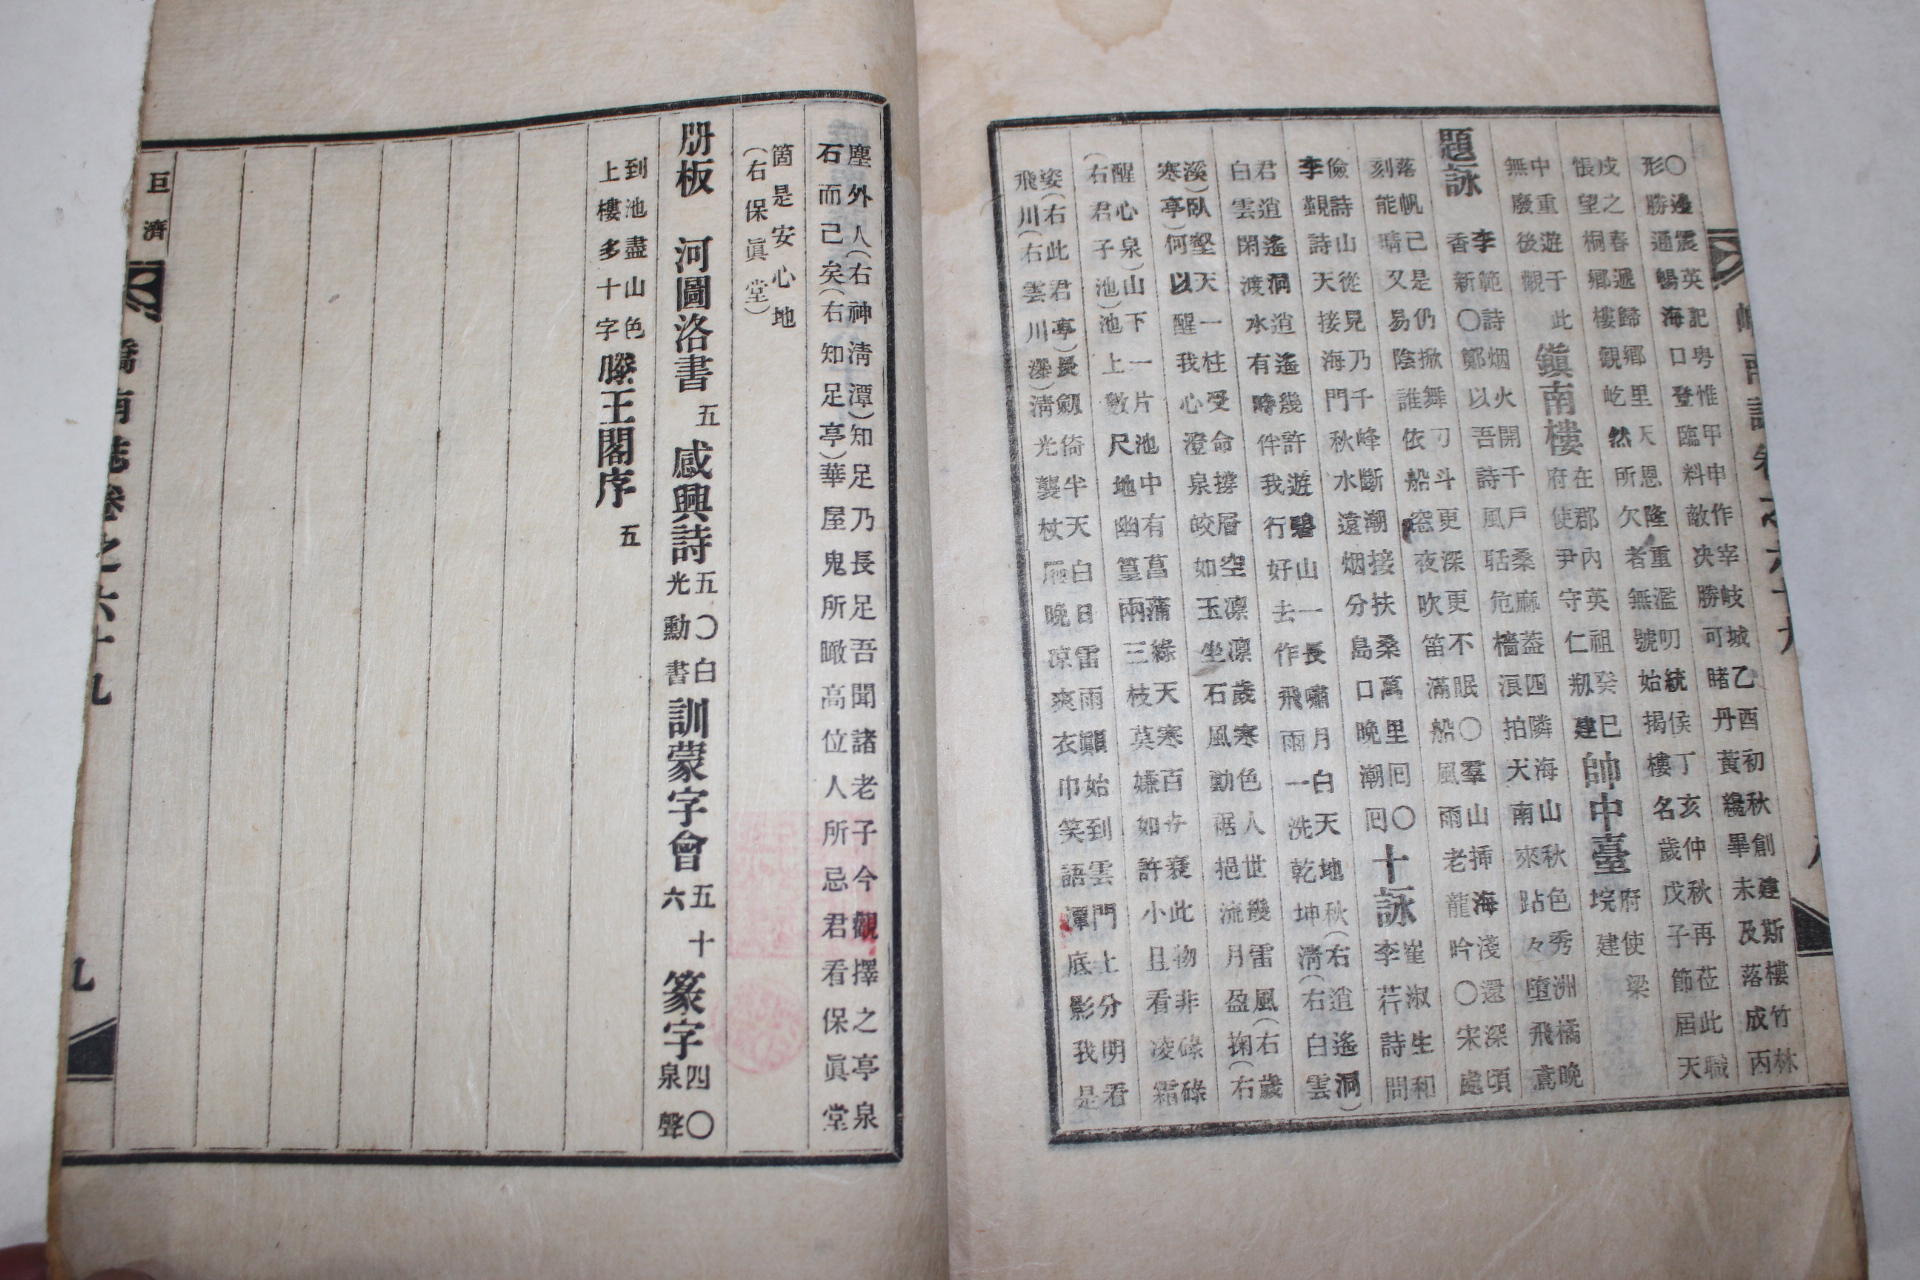 〇邊震英記粤惟甲申作宰岐城乙酉初秋創建斯樓竹林
形勝通暢海口登臨料敵決勝可睹丹黃纔畢未及落成丙
戌之春遞歸鄕里天恩隆重濫叨統侯丁亥仲秋再莅此職
悵望桐鄕樓觀屹然所欠者無號始揭樓名歲戊子節屆天
中重遊于此
無廢後觀
鎭南樓
在郡內英祖癸巳
府使尹守仁剏建
帥中臺
府使梁
垸建
題詠
李範詩烟火開千戶桑麻蓋四隣海山秋色秀洲橘晩
香新〇鄭以吾詩風聒危檣浪拍天南來跕々墮飛鳶
落帆己是仍掀舞刁斗更深更不眠〇羣山挿海淺還深頃
刻能晴又易陰誰依船窓夜吹笛滿船風雨老龍吟〇宋處
儉詩山從見乃千峰斷潮接扶桑萬里囘〇
李覲詩天接海門秋水遠烟分島口晩潮囘
十詠
崔淑生和
李芹詩問
君逍遙洞逍遙幾許遊碧山一長嘯月白天地秋(右逍遙洞)
白雲閑渡水有時伴我行好去作飛雨一洗乾坤淸(右白雲
溪)臥壑天一柱受命撐層空凛凛歲寒色人世幾雷風(右歲
寒亭)何以醒我心澄泉皎如玉坐石風動裾挹流月盈掬(右
醒心泉)山下一片池中有菖蒲綠天寒百卉衰此物非碌碌
(右君子池)池上數尺地幽篁兩三枝莫嫌如許小且看凌霜
姿(右此君亭)長劒倚半天白日雷雨顚始到雲門上分明看
飛川(右雲川瀑)淸光襲杖屨晩凉爽衣巾笑語潭底影我是
塵外人(右神淸潭)知足乃長足吾聞諸老子今觀擇之亭泉
石而己矣(右知足亭)華屋鬼所瞰高位人所忌君看保眞堂
箇是安心地
(右保眞堂)
册板 河圖洛書 五 感興詩
五〇白
光勳書
訓蒙字會
五十
六
篆字
四〇
泉聲
到池盡山色
上樓多十字
滕王閣序 五
巨濟
嶠南誌卷之六十九
九